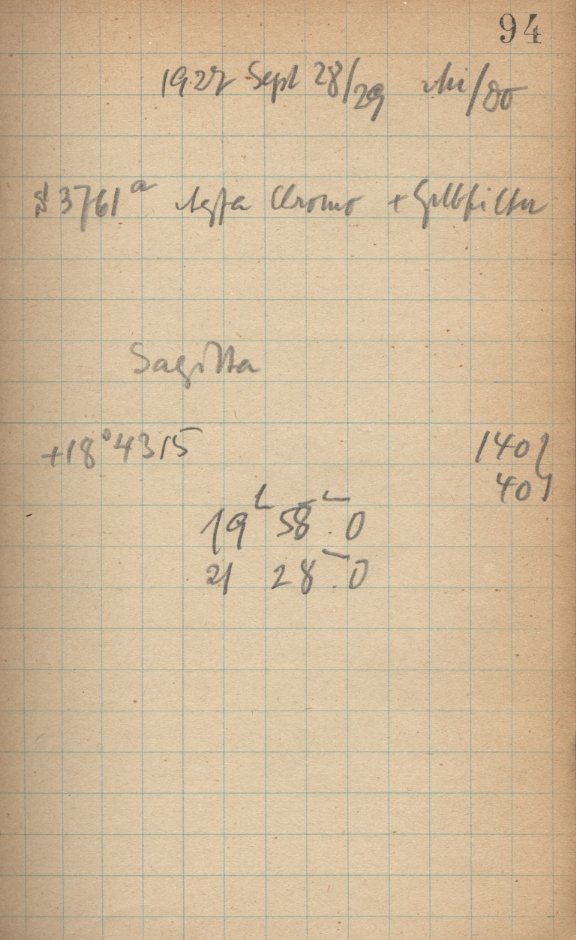 94
1927 Sept 28/29 Mi/Do
S 3761a Agfa Chromo + Gelbfilter
Sagitta
+18°4315 140
40
19h 58.0
21 28.0